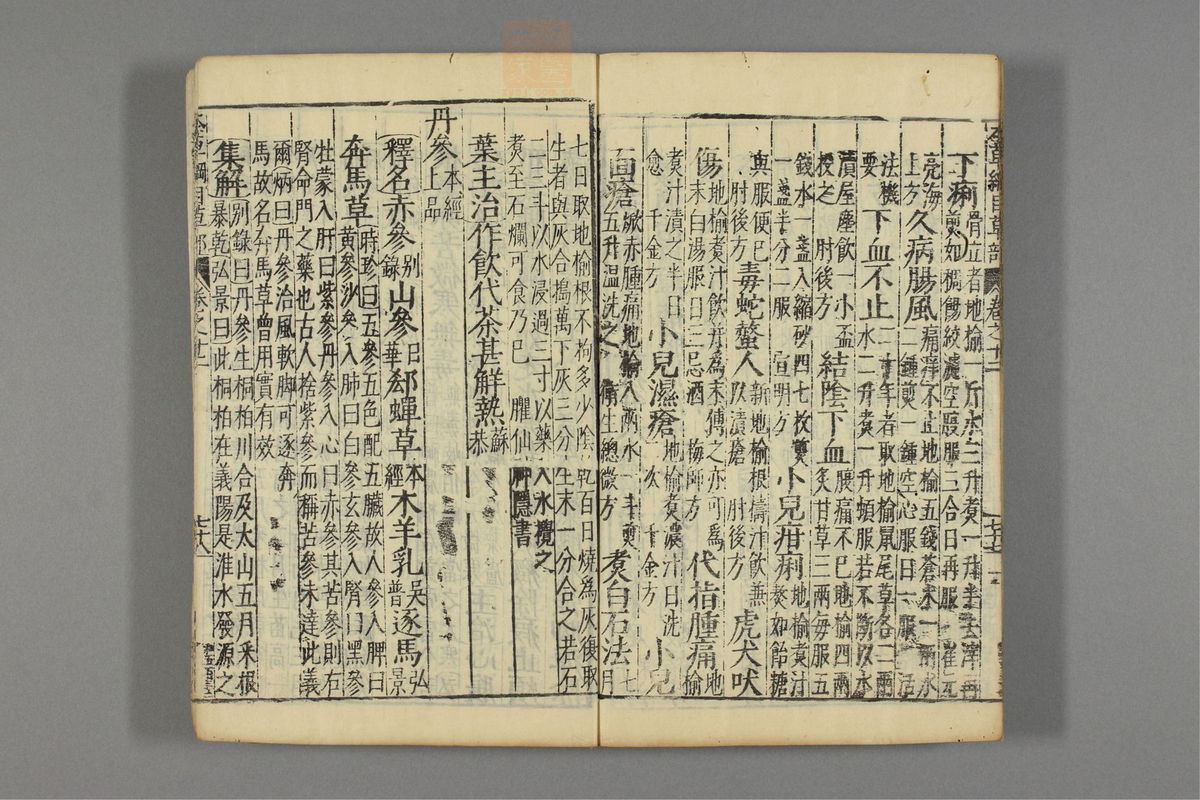 本草綱目草部 卷之十二 七十七
下痢 骨立者地榆一斤水三升煮一升半去滓再
煎如稠餳絞濾空腹服三合日再服 崔元
亮海
上方 久病腸風 痛痒不止地榆五錢蒼朮一兩水
二鍾煎一鍾空心服日一服 活
法機
要 下血不止 二十年者取地榆鼠尾草各二兩
水二升煮一升頓服若不斷以水
漬屋塵飲一小盃
投之 肘後方 結陰下血 腹痛不已地榆四兩
炙甘草三兩每服五
錢水一盞入縮砂四七枚煎
一盞半分二服 宣明方 小兒疳痢 地榆煮汁
熬如飴糖
與服便已
肘後方 毒蛇螫人 新地榆根搗汁飲兼
以漬瘡 肘後方 虎犬咬
傷 地榆煮汁飲并為末傅之亦可為
末白湯服日三忌酒 梅師方 代指腫痛 地
榆
煮汁漬之半日
愈 千金方 小兒濕瘡 地榆煮濃汁日洗
二次 千金方 小兒
面瘡 焮赤腫痛地榆八兩水一斗煎
五升温洗之 衛生總微方 煮白石法 七
月
七日取地榆根不拘多少陰乾百日燒為灰復取
生者與灰合搗萬下灰三分生末一分合之若石
二三斗以水浸過三寸以藥入水攪之
煮至石爛可食乃已 臞仙神隱書
葉主治作飲代茶甚解熱 蘇
恭
丹參 本經
上品
釋名赤參 别
錄 山參 日
華 郄蟬草 本
經 木羊乳 吳
普 逐馬 弘
景
奔馬草 時珍曰五參五色配五臟故人參入脾曰
黄參沙參入肺曰白參玄參入腎曰黑參
牡蒙入肝曰紫參丹參入心曰赤參其苦參則右
腎命門之藥也古人捨紫參而稱苦參未達此義
爾炳曰丹參治風軟脚可逐奔
馬故名奔馬草曾用實有效
集解 别錄曰丹參生桐柏川合及太山五月采根
暴乾弘景曰此桐柏在義陽是淮水發源之
本草綱目草部 卷之十二 七十八